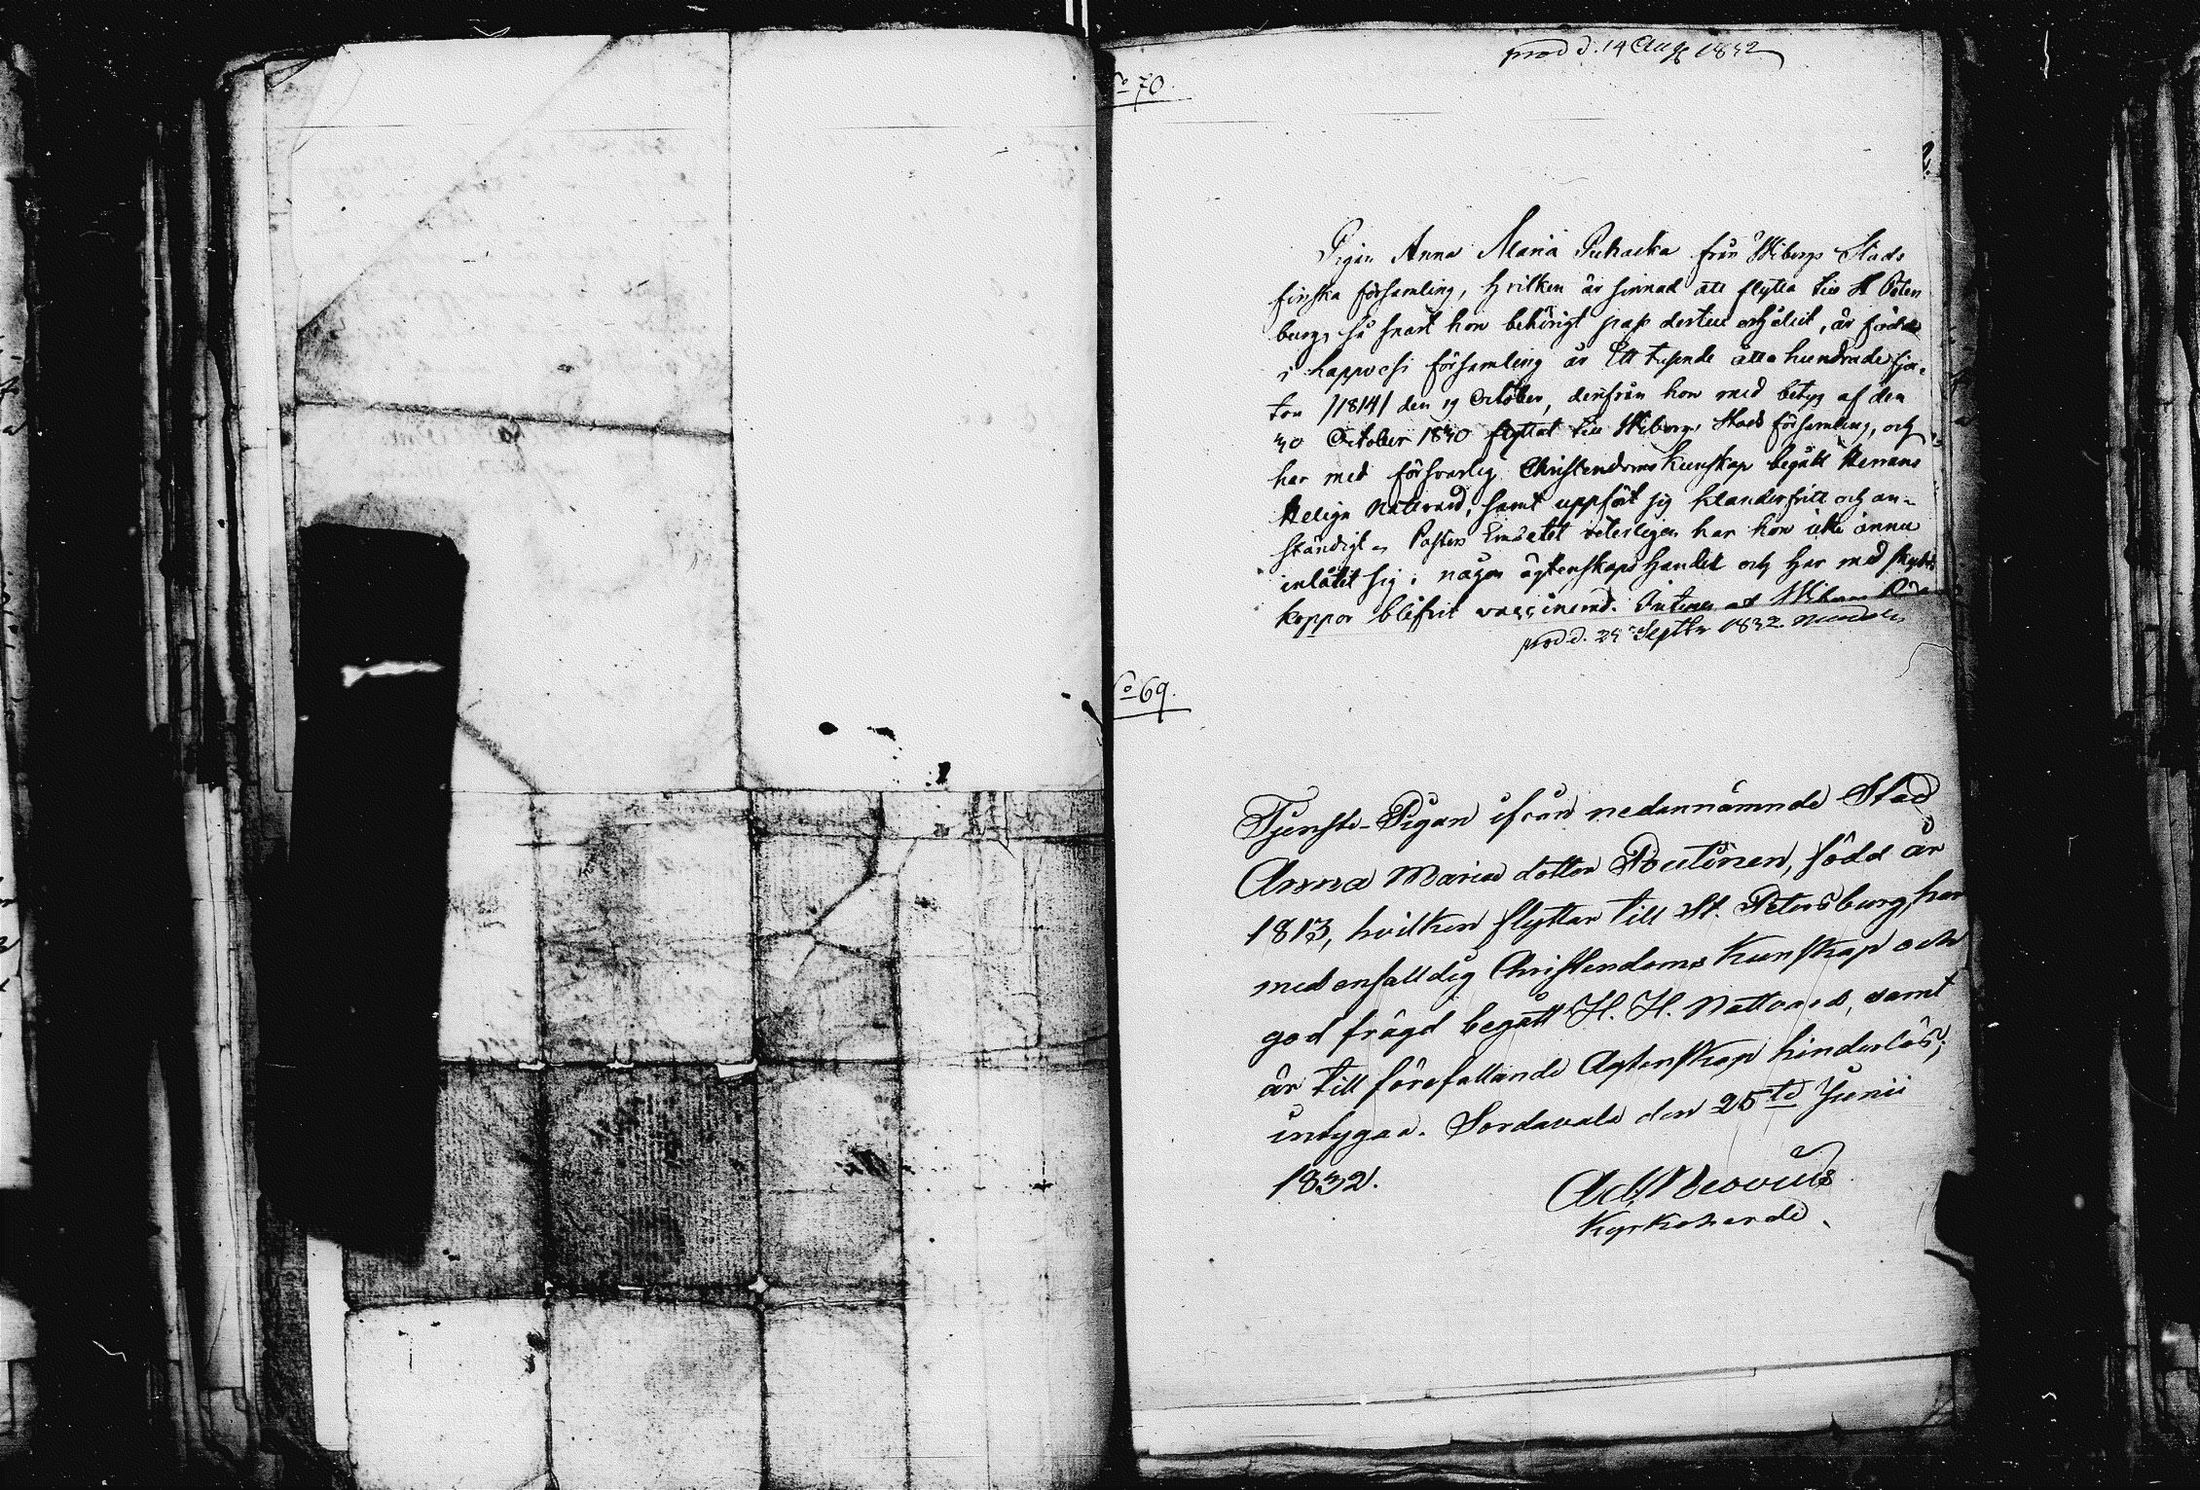 prod d. 14 Aug 1832
No 70.
Pigan Anna Maria Puhacka från Wiborgs Stads
finska församling, hvilken är sinnad att flytta till St Peters
burg, så snart hon behörigt pass dertill erhållit, är född
i församling år Ett tusende åtta hundrade fjor-
ton /1814/ den 19 October, derifrån hon med betyg af den
30 October 1830 flyttat till Wiborgs Stads församling, och
har med försvarlig Christendoms kunskap begått Herrans
Heliga Nattvard, samt uppfört sig klanderfritt och an-
ständigt. Pastors Embetet veterligen har hon icke ännu
inlåtit sig i någon ägtenskaps handel och har med skydds
koppor blifvit vaccinerad. Wiborg
prod d. Septbr 1832
No 69.
Tjenste-Pigan ifrån nedannämnde Stad
Anna Maria dotter Poutinen, född år
1813, hvilken flyttar till St. Petersburg, har
med enfalldig Christendoms Kunskap och
god frägd begått H. H. Nattvard, samt
är till förefallande Ägtenskap hinderlös;
intygas. Sordavala den 25te Junii
1832.
Ad. Neovius
Kyrkoherde.